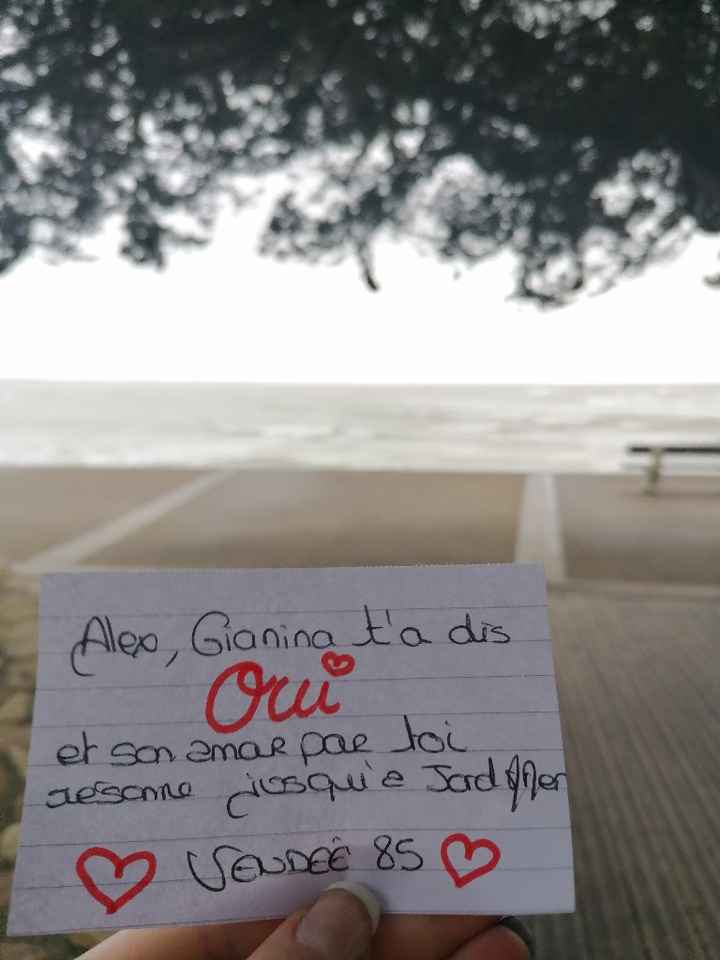 Alex, Gianina t'a dis
Oui
et son amor par toi
resonne josqu'a Jard s/Mer
VENDEÉ 85